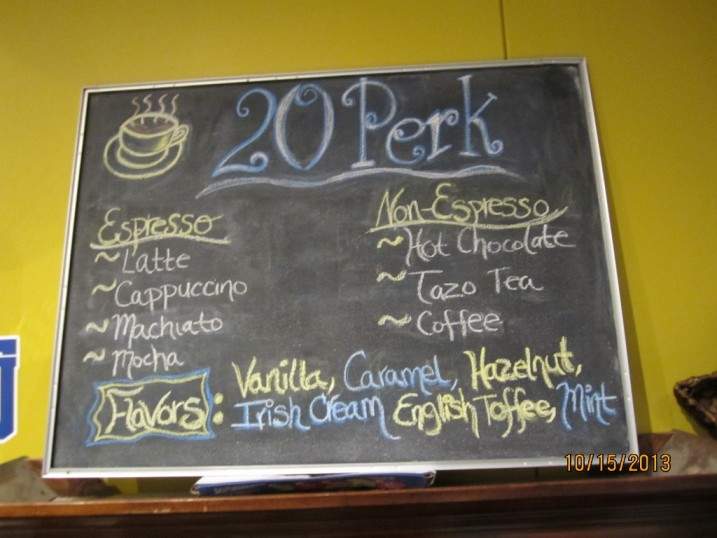 20 Perk
Espresso
~Latte
~Cappuccino
~Machiato
~Mocha
Non-Espresso
~Hot Chocolate
~Tazo Tea
~Coffee
Flavors: Vanilla, Caramel, Hazelnut,
Irish Cream English Toffee, Mint
10/15/2013